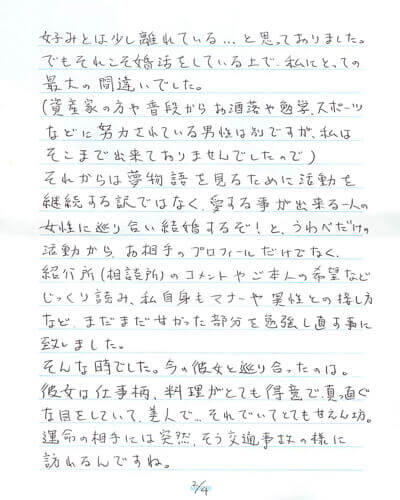 好みとは少し離れている…と思っておりました。
でもそれこそ婚活をしている上で、私にとっての
最大の間違いでした。
(資産家の方や普段からお洒落や勉学、スポーツ
などに努力されている男性は別ですが、私は
そこまで出来ておりませんでしたので)
それからは夢物語を見るために活動を
継続する訳ではなく、愛する事が出来る一人の
女性に巡り合い結婚するぞ!と、うわべだけの
活動から、お相手のプロフィールだけでなく、
紹介所(相談所)のコメントやご本人の希望など
じっくり読み、私自身もマナーや異性との接し方
など、まだまだ甘かった部分を勉強し直す事に
致しました。
そんな時でした。今の彼女と巡り合ったのは。
彼女は仕事柄、料理がとても得意で、真っ直ぐ
な目をしていて、美人で…それでいてとても甘えん坊。
運命の相手には突然、そう交通事故の様に
訪れるんですね。
2/4